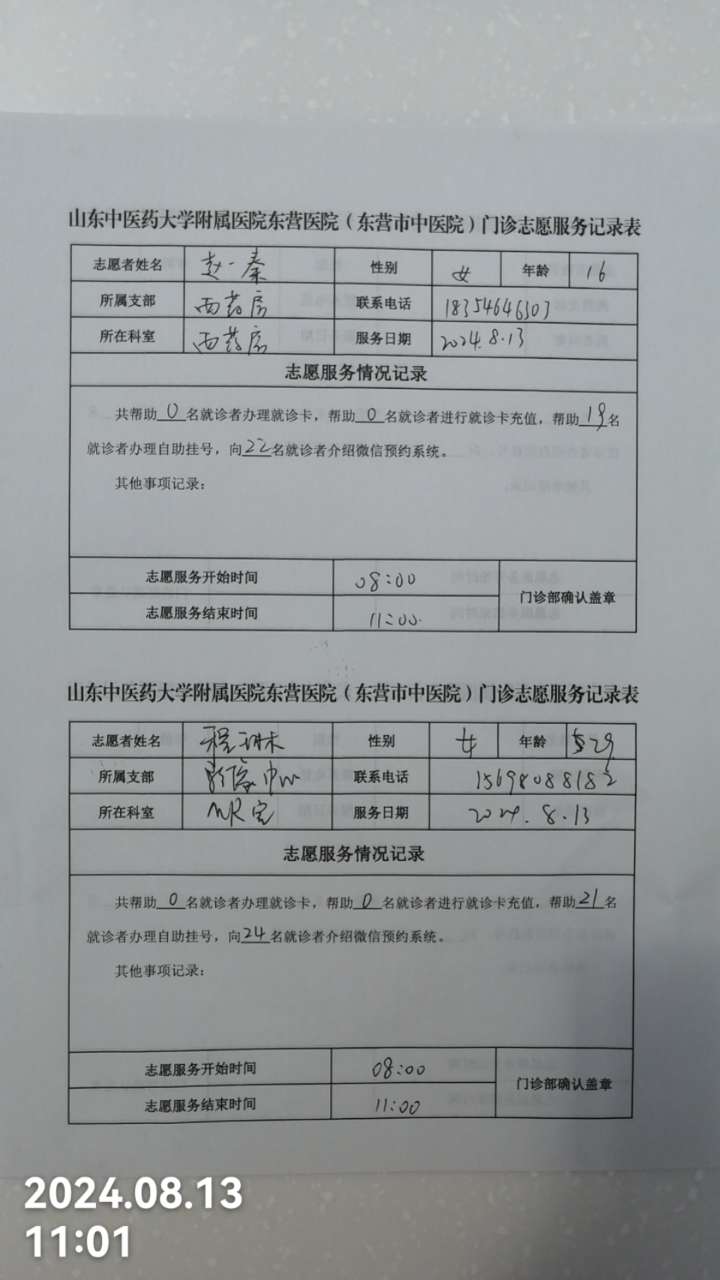 山东中医药大学附属医院东营医院（东营市中医院）门诊志愿服务记录表
志愿者姓名 赵一秦 性别 女 年龄 16
所属支部 西药房 联系电话 18354646507
所在科室 西药房 服务日期 2024.8.13
志愿服务情况记录
共帮助 0 名就诊者办理就诊卡，帮助 0 名就诊者进行就诊卡充值，帮助 19 名
就诊者办理自助挂号，向 22 名就诊者介绍微信预约系统。
其他事项记录：
志愿服务开始时间 08:00
门诊部确认盖章
志愿服务结束时间 11:00
山东中医药大学附属医院东营医院（东营市中医院）门诊志愿服务记录表
志愿者姓名 程琳 性别 女 年龄 29
所属支部 影像中心 联系电话 15698088182
所在科室 MR室 服务日期 2024.8.13
志愿服务情况记录
共帮助 0 名就诊者办理就诊卡，帮助 0 名就诊者进行就诊卡充值，帮助 21 名
就诊者办理自助挂号，向 24 名就诊者介绍微信预约系统。
其他事项记录：
志愿服务开始时间 08:00
门诊部确认盖章
志愿服务结束时间 11:00
2024.08.13
11:01